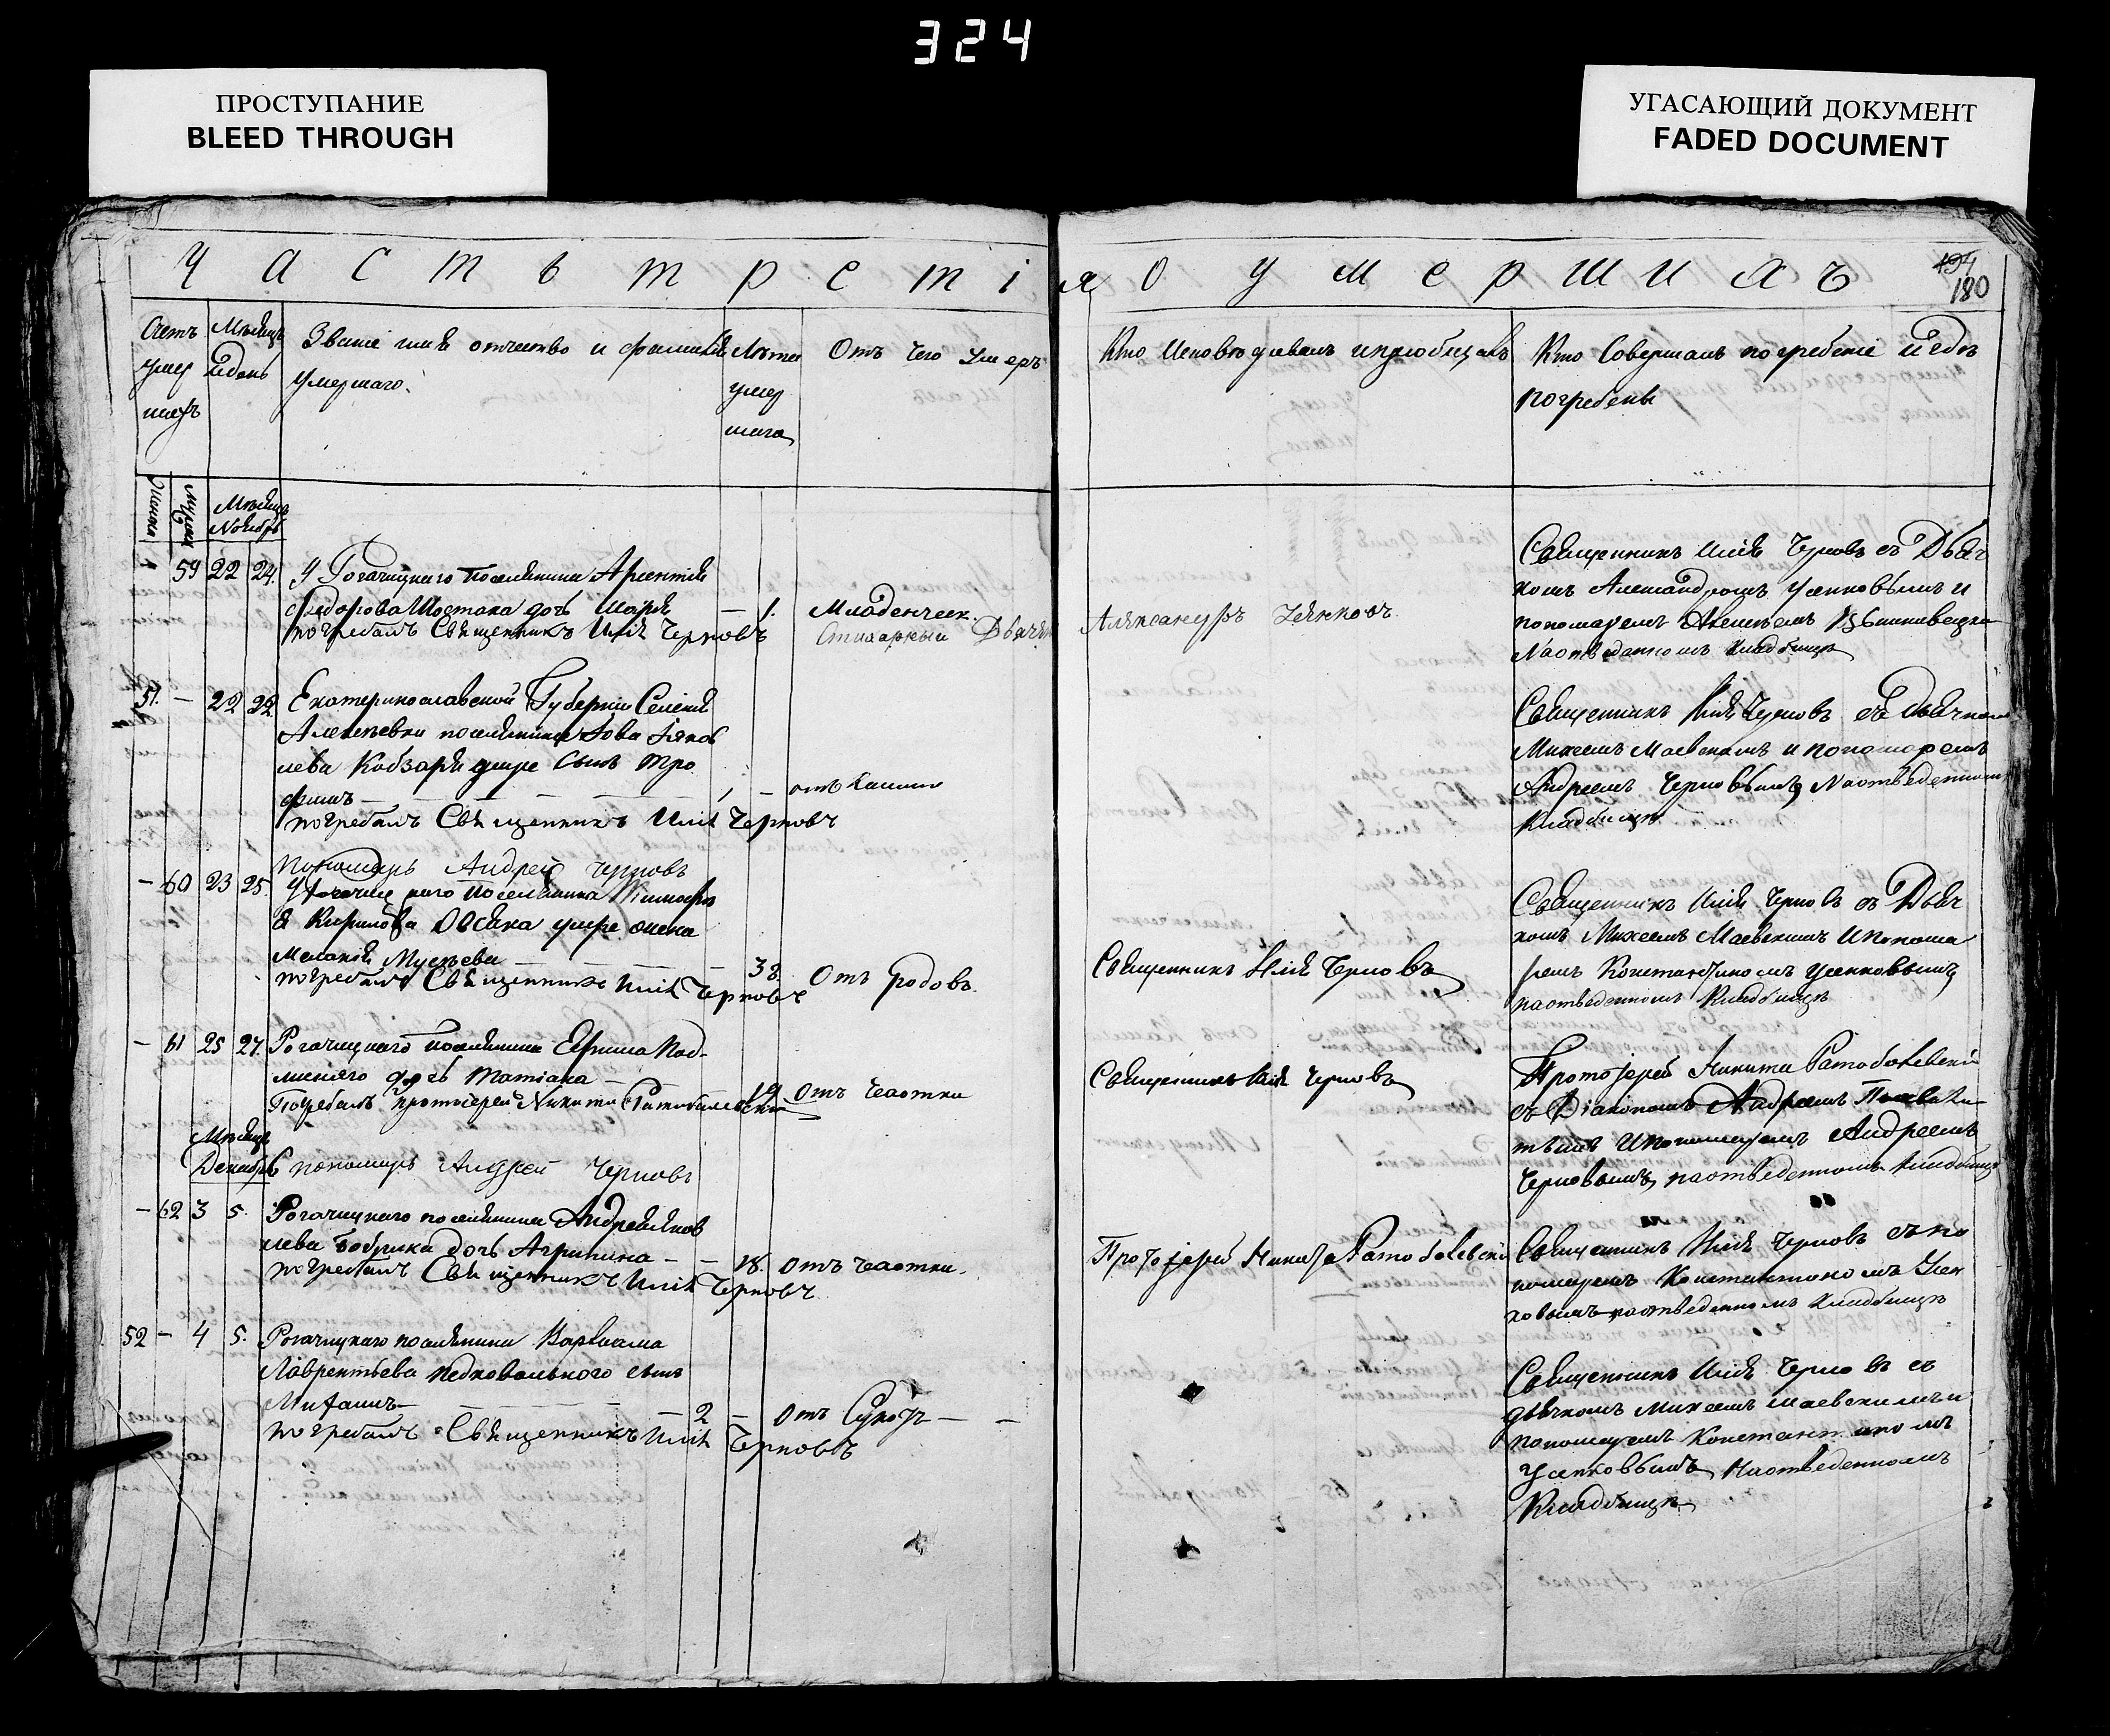 324
ПРОСТУПАНИЕ
BLEED THROUGH
УГАСАЮЩИЙ ДОКУМЕНТ
FADED DOCUMENT
Часть третія о умершихъ
194
180
Счетъ умер шихъ
Мѣсяцъ и день
Званіе имя отчество и фамилія умершаго.
Лѣта умер шаго
Отъ чего умеръ
Кто исповѣдывалъ и пріобщалъ
Кто совершалъ погребеніе и гдѣ погребены
Мѣсяцъ Ноябрь
59 22 24. У Рогачицкаго поселянина Арсентія
Федорова Шостака дочь Марія — 1. Младенческ.
погребалъ Священникъ Илія Черновъ
Стихарный Дьячекъ Александръ Усенковъ
Священникъ Илія Черновъ съ Дьяч
комъ Александромъ Усенковымъ и
пономаремъ Алексѣемъ
На отведенномъ кладбищѣ
51. — 22 22. Екатеринославской Губерніи Селенія
Алексѣевки поселянина Іова Іяков
лева Кобзаря умре сынъ Тро
фимъ — 1 — отъ кашлю
погребалъ Священникъ Илія Черновъ
Священникъ Илія Черновъ съ Дьячкомъ
Михеемъ Маевскимъ и пономаремъ
Андреемъ Черновымъ На отведенномъ
Кладбищѣ
пономарь Андрей Черновъ
— 60 23 25. У Рогачицкаго поселянина Тимофѣ
я Кирилова Овсяка умре жена
Меланія Мусѣева — 38 Отъ родовъ
погребалъ Священникъ Илія Черновъ
Священникъ Илія Черновъ
Священникъ Илія Черновъ съ Дьяч
комъ Михеемъ Маевскимъ и понома
ремъ Константиномъ Усенковымъ
на отведенномъ Кладбищѣ
— 61 25 27. Рогачицкаго поселянина Ефима Под-
дочь Татіана — 19 Отъ чахотки
Погребалъ протоіерей Никита Ратоболевскій
Священникъ Илія Черновъ
Протоіерей Никита Ратоболевскій
съ Діакономъ Андреемъ
и пономаремъ Андреемъ
Черновымъ, на отведенномъ кладбищѣ
Мѣсяцъ
Декабрь пономарь Андрей Черновъ
— 62 3 5. Рогачицкаго поселянина Андрея Яков
лева Бобрика дочь Агрипина — — 18. отъ чахотки.
погребалъ Священникъ Илія Черновъ
Протоіерей Никита Ратоболевскій
Священникъ Илія Черновъ съ по
номаремъ Константиномъ Усен
ковымъ на отведенномъ кладбищѣ
52 — 4 5. Рогачицкаго поселянина Варлаама
Лаврентьева Недковального сынъ
Митанъ — 2 — Отъ Сухотъ — —
погребалъ Священникъ Илія Черновъ
Священникъ Илія Черновъ съ
дьячкомъ Михеемъ Маевскимъ и
пономаремъ Константиномъ
Усенковымъ, На отведенномъ
Кладбищѣ